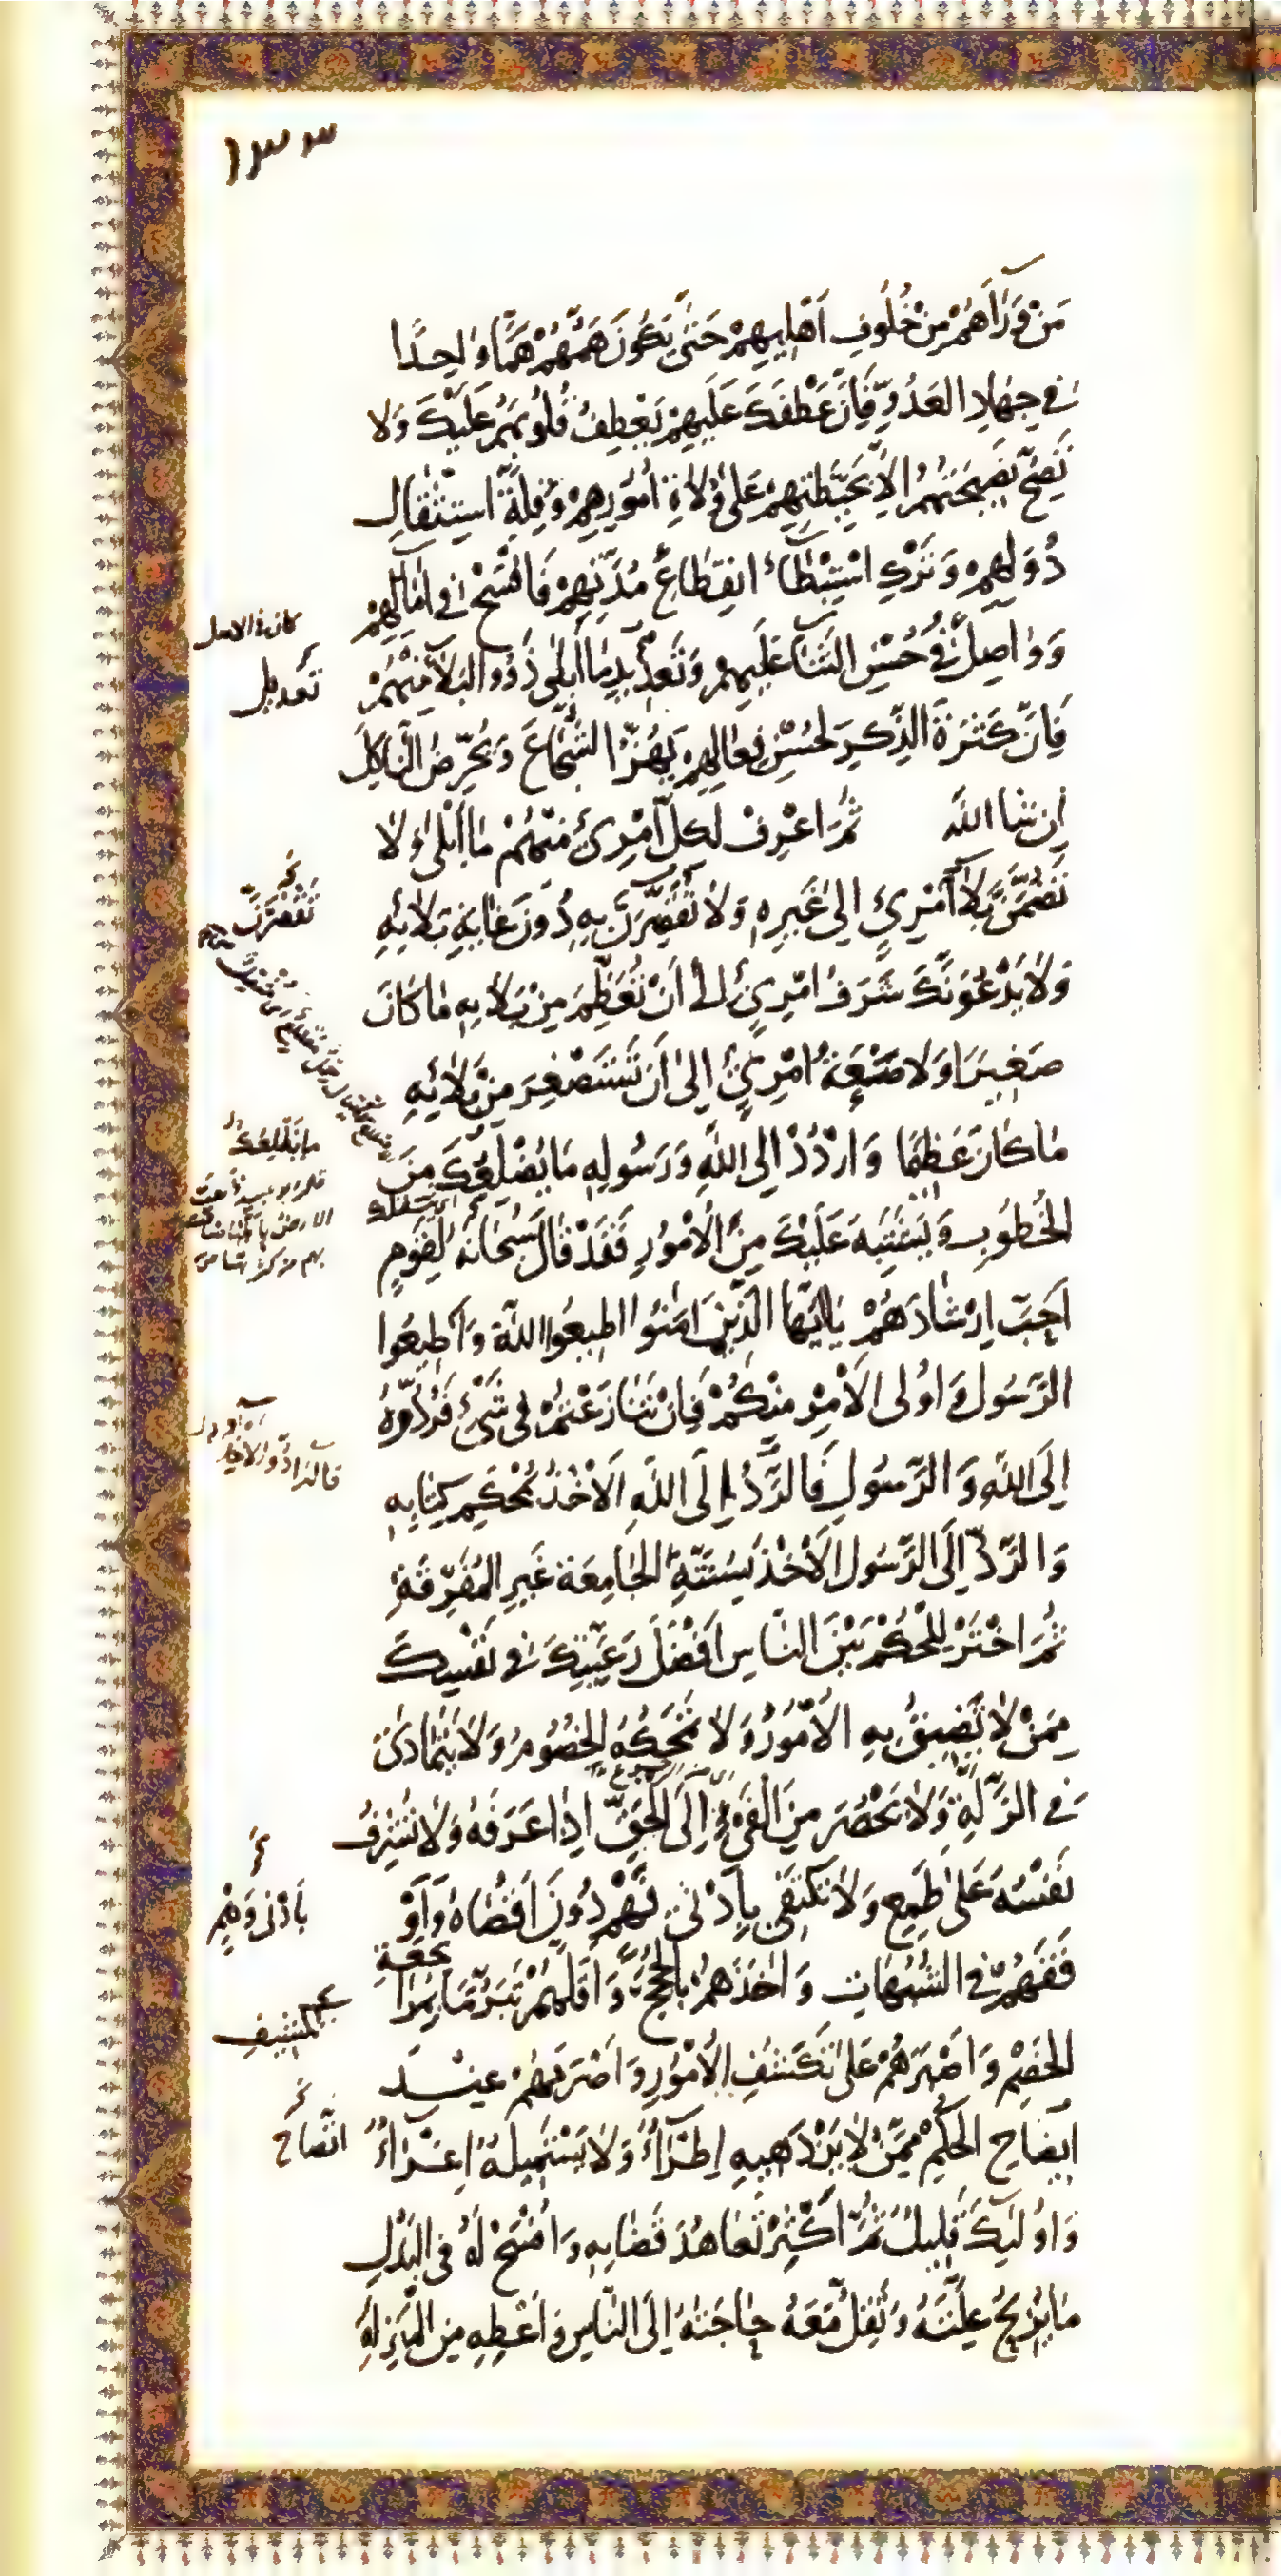 ١٣٣
مَنْ وَرَآءَهُمْ مِنْ خُلُوفِ اَهْلِيهِمْ حَتّٰى يَكُونَ هَمُّهُمْ هَمًّا وٰاحِدًا
فِي جِهٰادِ العَدُوِّ فَاِنَّ عَطْفَكَ عَلَيْهِمْ يَعْطِفُ قُلُوبَهُمْ عَلَيْكَ وَلا
تَصِحُّ نَصِيحَتُهُمْ اِلاّٰ بِحِيْطَتِهِمْ عَلىٰ وُلاٰةِ اُمُورِهِمْ وَقِلَّةِ اسْتِثْقٰالِ
دُوَلِهِمْ وَتَرْكِ اسْتِبْطٰاءِ انْقِطٰاعِ مُدَّتِهِمْ فَافْسَحْ فِي اٰمٰالِهِمْ
وَوٰاصِلْ فِي حُسْنِ الثَّنٰاءِ عَلَيْهِمْ وَتَعْدِيدِ مٰا اَبْلىٰ ذَوُو البَلاٰءِ مِنْهُمْ
كان في الاصل
تعديل
فَاِنَّ كَثْرَةَ الذِّكْرِ لِحُسْنِ فِعٰالِهِمْ تَهُزُّ الشُّجٰاعَ وَتُحَرِّضُ النّٰاكِلَ
اِن شٰا اللّٰه ثُمَّ اعْرِفْ لِكُلِّ امْرِئٍ مِنْهُمْ مٰا اَبْلىٰ وَلاٰ
تَضُمَّنَّ بَلاٰءَ امْرِئٍ اِلىٰ غَيْرِهِ وَلاٰ تُقَصِّرَنَّ بِهِ دُونَ غٰايَةِ بَلاٰئِهِ
تَقْصُرَنَّ
وَلاٰ يَدْعُوَنَّكَ شَرَفُ امْرِئٍ اِلىٰ اَنْ تُعَظِّمَ مِنْ بَلاٰئِهِ مٰا كٰانَ
صَغِيرًا وَلاٰ ضَعَةُ امْرِئٍ اِلىٰ اَنْ تَسْتَصْغِرَ مِنْ بَلاٰئِهِ
مٰا كٰانَ عَظِيمًا وَارْدُدْ اِلَى اللّٰهِ وَرَسُولِهِ مٰا يُضْلِعُكَ مِنَ
الخُطُوبِ وَيَشْتَبِهُ عَلَيْكَ مِنَ الاُمُورِ فَقَدْ قٰالَ سُبْحٰانَهُ لِقَوْمٍ
اَحَبَّ اِرْشٰادَهُمْ يٰا اَيُّهَا الَّذِينَ اٰمَنُوا اَطِيعُوا اللّٰهَ وَاَطِيعُوا
الرَّسُولَ وَاُولِى الاَمْرِ مِنْكُمْ فَاِنْ تَنٰازَعْتُمْ فِى شَيْءٍ فَرُدُّوهُ
اِلَى اللّٰهِ وَالرَّسُولِ فَالرَّدُّ اِلَى اللّٰهِ الاَخْذُ بِمُحْكَمِ كِتٰابِهِ
وَالرَّدُّ اِلَى الرَّسُولِ الاَخْذُ بِسُنَّتِهِ الجٰامِعَةِ غَيْرِ المُفَرِّقَةِ
ثُمَّ اخْتَرْ لِلْحُكْمِ بَيْنَ النّٰاسِ اَفْضَلَ رَعِيَّتِكَ فِي نَفْسِكَ
مِمَّنْ لاٰ تَضِيقُ بِهِ الاُمُورُ وَلاٰ تُمَحِّكُهُ الخُصُومُ وَلاٰ يَتَمٰادىٰ
فِى الزَّلَّةِ وَلاٰ يَحْصَرُ مِنَ الْفَيْءِ اِلَى الحَقِّ اِذٰا عَرَفَهُ وَلاٰ تُشْرِفُ
نَفْسُهُ عَلىٰ طَمَعٍ وَلاٰ يَكْتَفِي بِاَدْنىٰ فَهْمٍ دُونَ اَقْصٰاهُ وَاَوْ
بِاَدْنىٰ فَهْمٍ
قَفَهُمْ فِى الشُّبُهٰاتِ وَاٰخَذَهُمْ بِالحُجَجِ وَاَقَلَّهُمْ تَبَرُّمًا بِمُرٰاجَعَةِ
الخَصْمِ وَاَصْبَرَهُمْ عَلىٰ تَكَشُّفِ الاُمُورِ وَاَصْرَمَهُمْ عِنْدَ
اِيضٰاحِ الحُكْمِ مِمَّنْ لاٰ يَزْدَهِيهِ اِطْرٰاءٌ وَلاٰ يَسْتَمِيلُهُ اِغْرٰاءٌ
اتّضاح
وَاُولٰئِكَ قَلِيلٌ ثُمَّ اَكْثِرْ تَعٰاهُدَ قَضٰائِهِ وَافْسَحْ لَهُ فِى البَذْلِ
مٰا يُزِيحُ عِلَّتَهُ وَتَقِلُّ مَعَهُ حٰاجَتُهُ اِلَى النّٰاسِ وَاَعْطِهِ مِنَ الْمَنْزِلَةِ